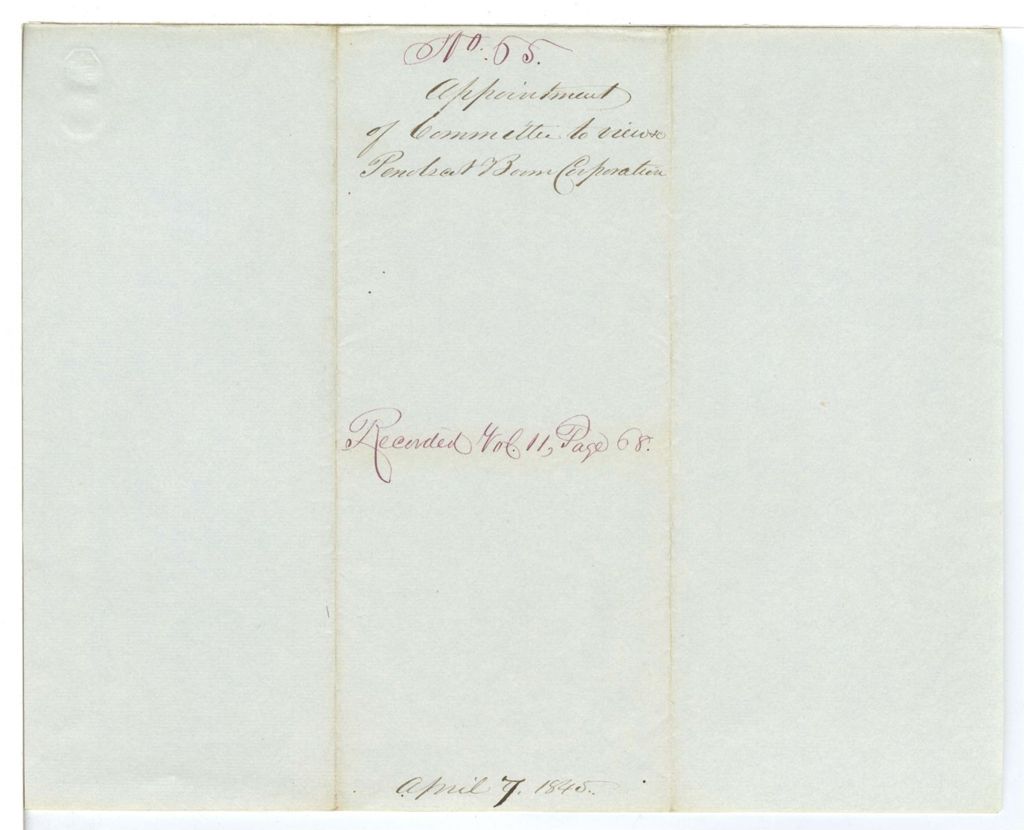 No. 65.
Appointment
of Committee to view
Penobscot Boom Corporation
Recorded Vol. 11, Page 68.
April 7. 1845.